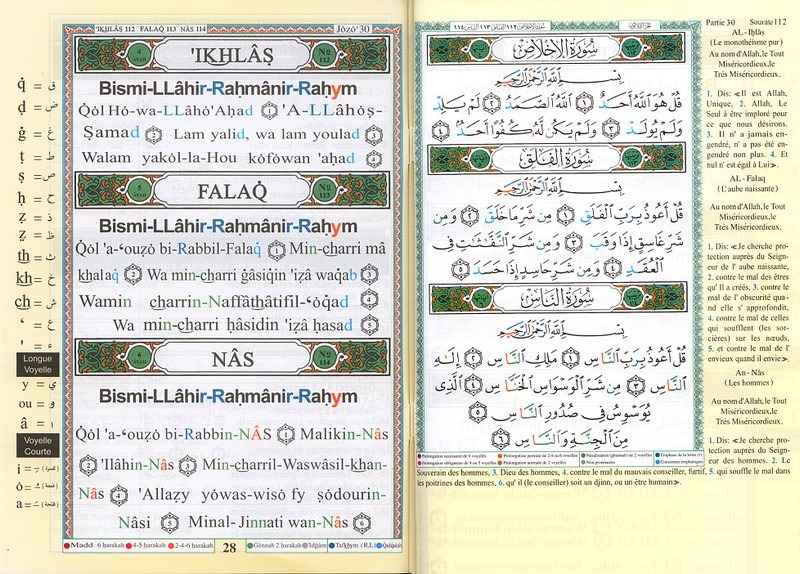 'IKHLÂṢ 112 FALAQ̇ 113 NÂS 114 Jòzò' 30
'IKHLÂṢ
No 112
Bismi-LLâhir-Raḥmânir-Raḥym
Q̇òl Hò-wa-LLâhò'Aḥad ① 'A-LLâhòṣ-
Ṣamad ② Lam yalid, wa lam youlad ③
Walam yakòl-la-Hou kòfòwan 'aḥad ④
FALAQ̇
No 113
Bismi-LLâhir-Raḥmânir-Raḥym
Q̇òl 'a-ʿouẓò bi-Rabbil-Falaq̇ ① Min-charri mâ
khalaq̇ ② Wa min-charri ġâsiq̇in 'iẓâ waq̇ab ③
Wamin charrin-Naffâthâtifil-ʿòq̇ad ④
Wa min-charri ḥâsidin 'iẓâ ḥasad ⑤
NÂS
No 114
Bismi-LLâhir-Raḥmânir-Raḥym
Q̇òl 'a-ʿouẓò bi-Rabbin-NÂS ① Malikin-Nâs
② 'Ilâhin-Nâs ③ Min-charril-Waswâsil-khan-
Nâs ④ 'Allaẓy yòwas-wisò fy ṣòdourin-
Nâsi ⑤ Minal-Jinnati wan-Nâs ⑥
q̇ = ق
ḍ = ض
ġ = غ
ṭ = ط
ṣ = ص
ḥ = ح
ẓ = ذ
ẓ = ظ
th = ث
kh = خ
ch = ش
ʿ = ع
' = ء
Longue
Voyelle
y = ي
ou = و
â = ا
Voyelle
Courte
i =
ò =
a =
Madd 6 ḥarakah 4-5 ḥarakah 2-4-6 ḥarakah 28 Gònnah 2 ḥarakah 'Idġâm Tafkhym (R,L) Qalqalah
سُورَةُ الإِخْلَاصِ
بِسْمِ اللَّهِ الرَّحْمَٰنِ الرَّحِيمِ
قُلْ هُوَ اللَّهُ أَحَدٌ ① اللَّهُ الصَّمَدُ ② لَمْ يَلِدْ
وَلَمْ يُولَدْ ③ وَلَمْ يَكُن لَّهُ كُفُوًا أَحَدٌ ④
سُورَةُ الْفَلَقِ
بِسْمِ اللَّهِ الرَّحْمَٰنِ الرَّحِيمِ
قُلْ أَعُوذُ بِرَبِّ الْفَلَقِ ① مِن شَرِّ مَا خَلَقَ ② وَمِن
شَرِّ غَاسِقٍ إِذَا وَقَبَ ③ وَمِن شَرِّ النَّفَّاثَاتِ فِي
الْعُقَدِ ④ وَمِن شَرِّ حَاسِدٍ إِذَا حَسَدَ ⑤
سُورَةُ النَّاسِ
بِسْمِ اللَّهِ الرَّحْمَٰنِ الرَّحِيمِ
قُلْ أَعُوذُ بِرَبِّ النَّاسِ ① مَلِكِ النَّاسِ ② إِلَٰهِ
النَّاسِ ③ مِن شَرِّ الْوَسْوَاسِ الْخَنَّاسِ ④ الَّذِي
يُوَسْوِسُ فِي صُدُورِ النَّاسِ ⑤
مِنَ الْجِنَّةِ وَالنَّاسِ ⑥
Partie 30 Sourate 112
AL - Iḫlâṣ
(Le monothéisme pur)
Au nom d'Allah, le Tout
Miséricordieux, le
Très Miséricordieux.
1. Dis: «Il est Allah,
Unique. 2. Allah, Le
Seul à être imploré pour
ce que nous désirons.
3. Il n' a jamais en-
gendré, n' a pas été en-
gendré non plus. 4. Et
nul n' est égal à Lui».
AL - Falaq
(L' aube naissante)
Au nom d'Allah, le Tout
Miséricordieux, le
Très Miséricordieux.
1. Dis: «Je cherche pro-
tection auprès du Seign-
eur de l' aube naissante,
2. contre le mal des êtres
qu' Il a créés, 3. contre le
mal de l' obscurité qua-
nd elle s' approfondit,
4. contre le mal de celles
qui soufflent (les sor-
cières) sur les nœuds,
5. et contre le mal de l'
envieux quand il envie».
An - Nâs
(Les hommes)
Au nom d'Allah, le Tout
Miséricordieux, le
Très Miséricordieux.
1. Dis: «Je cherche pro-
tection auprès du Seign-
eur des hommes. 2. Le
Souverain des hommes, 3. Dieu des hommes, 4. contre le mal du mauvais conseiller, furtif, 5. qui souffle le mal dans
les poitrines des hommes, 6. qu' il (le conseiller) soit un djinn, ou un être humain».